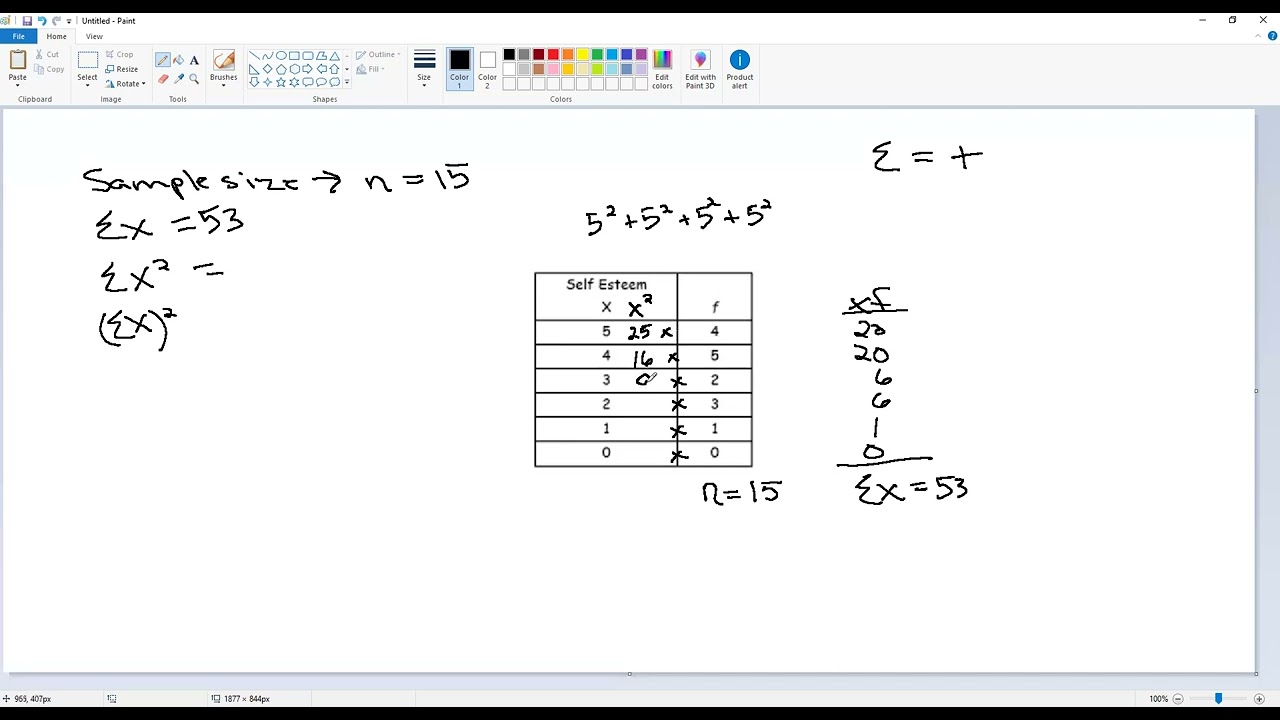 Untitled - Paint
File Home View
Paste Cut Copy Clipboard
Select Crop Resize Rotate Image
Tools
Brushes
Shapes Outline Fill
Size
Color 1 Color 2 Edit colors Colors
Edit with Paint 3D
Product alert
Sample size → n = 15
Σx = 53
Σx² =
(Σx)²
Σ = +
5² + 5² + 5² + 5²
Self Esteem
X x² f
5 25 x 4
4 16 x 5
3 x 2
2 x 3
1 x 1
0 x 0
n = 15
xf
20
20
6
6
1
0
Σx = 53
965, 407px
1877 × 844px
100%